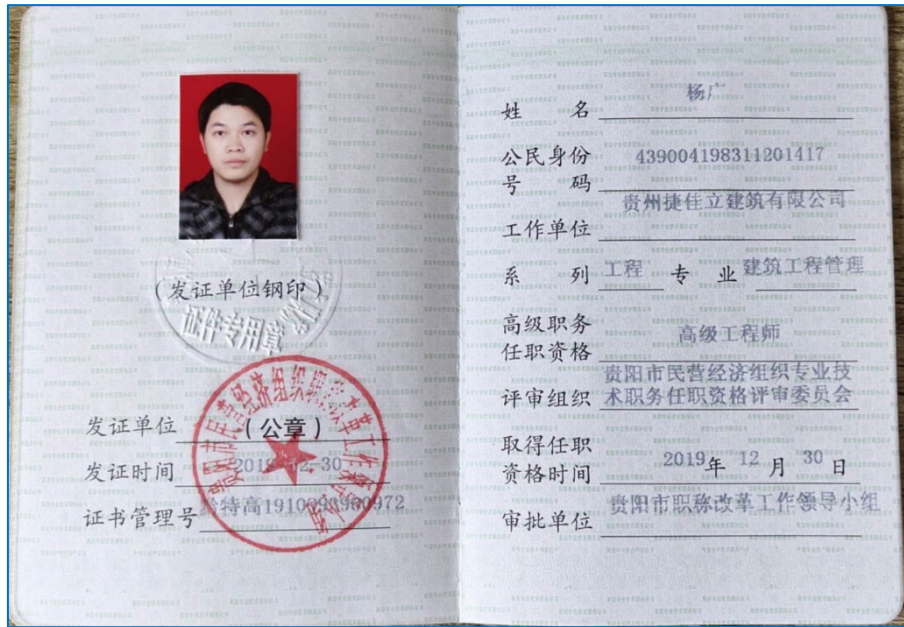 证件专用章
(发证单位钢印)
发证单位 (公章)
发证时间 2019-12-30
证书管理号
姓 名 杨广
公民身份号 码 439004198311201417
工作单位 贵州捷佳立建筑有限公司
系 列 工程 专 业 建筑工程管理
高级职务
任职资格 高级工程师
评审组织 贵阳市民营经济组织专业技
术职务任职资格评审委员会
取得任职
资格时间 2019年 12 月 30 日
审批单位 贵阳市职称改革工作领导小组